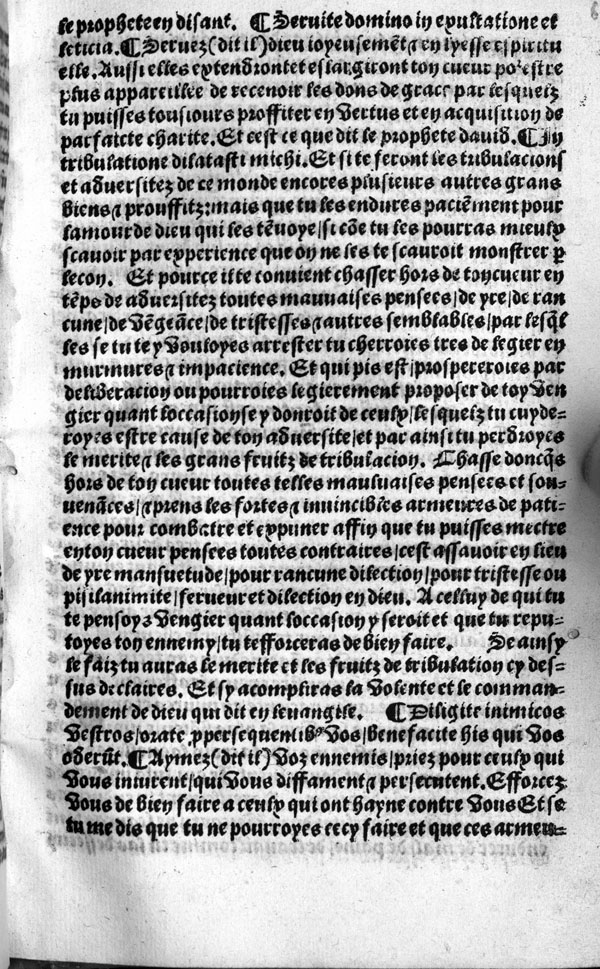 le prophete en disant. ¶ Seruite domino in exultatione et
leticia. ¶ Seruez (dit il) dieu ioyeusemēt ⁊ en lyesse espiritu
elle. Aussi elles extendront et eslargiront ton cueur poꝛ estre
plus appareillee de receuoir les dons de grace par lesqueiz
tu puisses tousiours proffiter en vertus et en acquisition de
parfaicte charite. Et cest ce que dit le prophete dauid. ¶ In
tribulatione dilatasti michi. Et si te feront les tribulacions
et aduersitez de ce monde encores plusieurs autres grans
biens ⁊ prouffitz: mais que tu les endures paciēment pour
lamour de dieu qui les tēuoye / si cōe tu les pourras mieulx
scauoir par experience que on ne les te scauroit monstrer ꝑ
lecon. Et pource il te conuient chasser hors de ton cueur en
tēps de aduersitez toutes mauuaises pensees / de yre / de ran
cune / de vēgeāce / de tristesses ⁊ autres semblables / par lesq̄l
les se tu te y vouloyes arrester tu cherroies tres de legier en
murmures ⁊ impacience. Et qui pis est / prospereroies par
deliberacion ou pourroies legierement proposer de toy ven
gier quant loccasion se y donroit de ceulx / lesqueiz tu cuyde-
royes estre cause de ton aduersite / et par ainsi tu perdroyes
le merite ⁊ les grans fruitz de tribulacion. Chasse doncq̄s
hors de ton cueur toutes telles mauluaises pensees et sou-
uenāces / ⁊ prens les fortes ⁊ inuincibles armeures de pati-
ence pour combatre et expuner affin que tu puisses mectre
en ton cueur pensees toutes contraires / cest assauoir en lieu
de yre mansuetude / pour rancune dilection / pour tristesse ou
pisilanimite / ferueur et dilection en dieu. A celluy de qui tu
te pensoys vengier quant loccasion y seroit et que tu repu-
toyes ton ennemy / tu tefforceras de bien faire. Se ainsy
le faiz tu auras le merite et les fruitz de tribulation cy des-
sus declaires. Et sy acompliras la volente et le comman-
dement de dieu qui dit en leuangile. ¶ Diligite inimicos
vestros / orate ꝓ persequentibꝰ vos / benefacite his qui vos
oderūt. ¶ Aymez (dit il) voz ennemis / priez pour ceulx qui
vous iniurent / qui vous diffament ⁊ persecutent. Efforcez
vous de bien faire a ceulx qui ont hayne contre vous Et se
tu me dis que tu ne pourroyes cecy faire et que ces armeu-